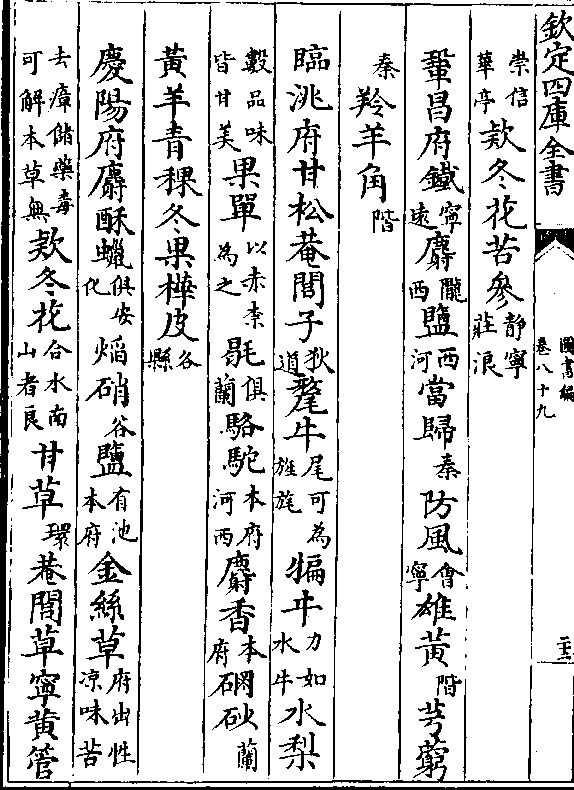 欽定四庫全書 圖書編 卷八十九
崇信華亭欵冬花苦參靜寧莊浪
鞏昌府鐵寧遠麝隴西鹽西河當歸秦防風會寧雄黃階芎窮
秦羚羊角階
臨洮府甘松菴閭子狄道氂牛尾可為旌旄犏牛力如水牛水梨
榖品味皆甘美果單以赤柰為之毼俱蘭駱駝本府河西麝香本府硇砂蘭
黃羊青稞冬果樺皮各縣
慶陽府麝酥蠟俱安化焰硝谷鹽有池本府金絲草府出性涼味苦
去瘴儲藥毒可解本草無欵冬花合水南山者良甘草環菴閭草寧黃管